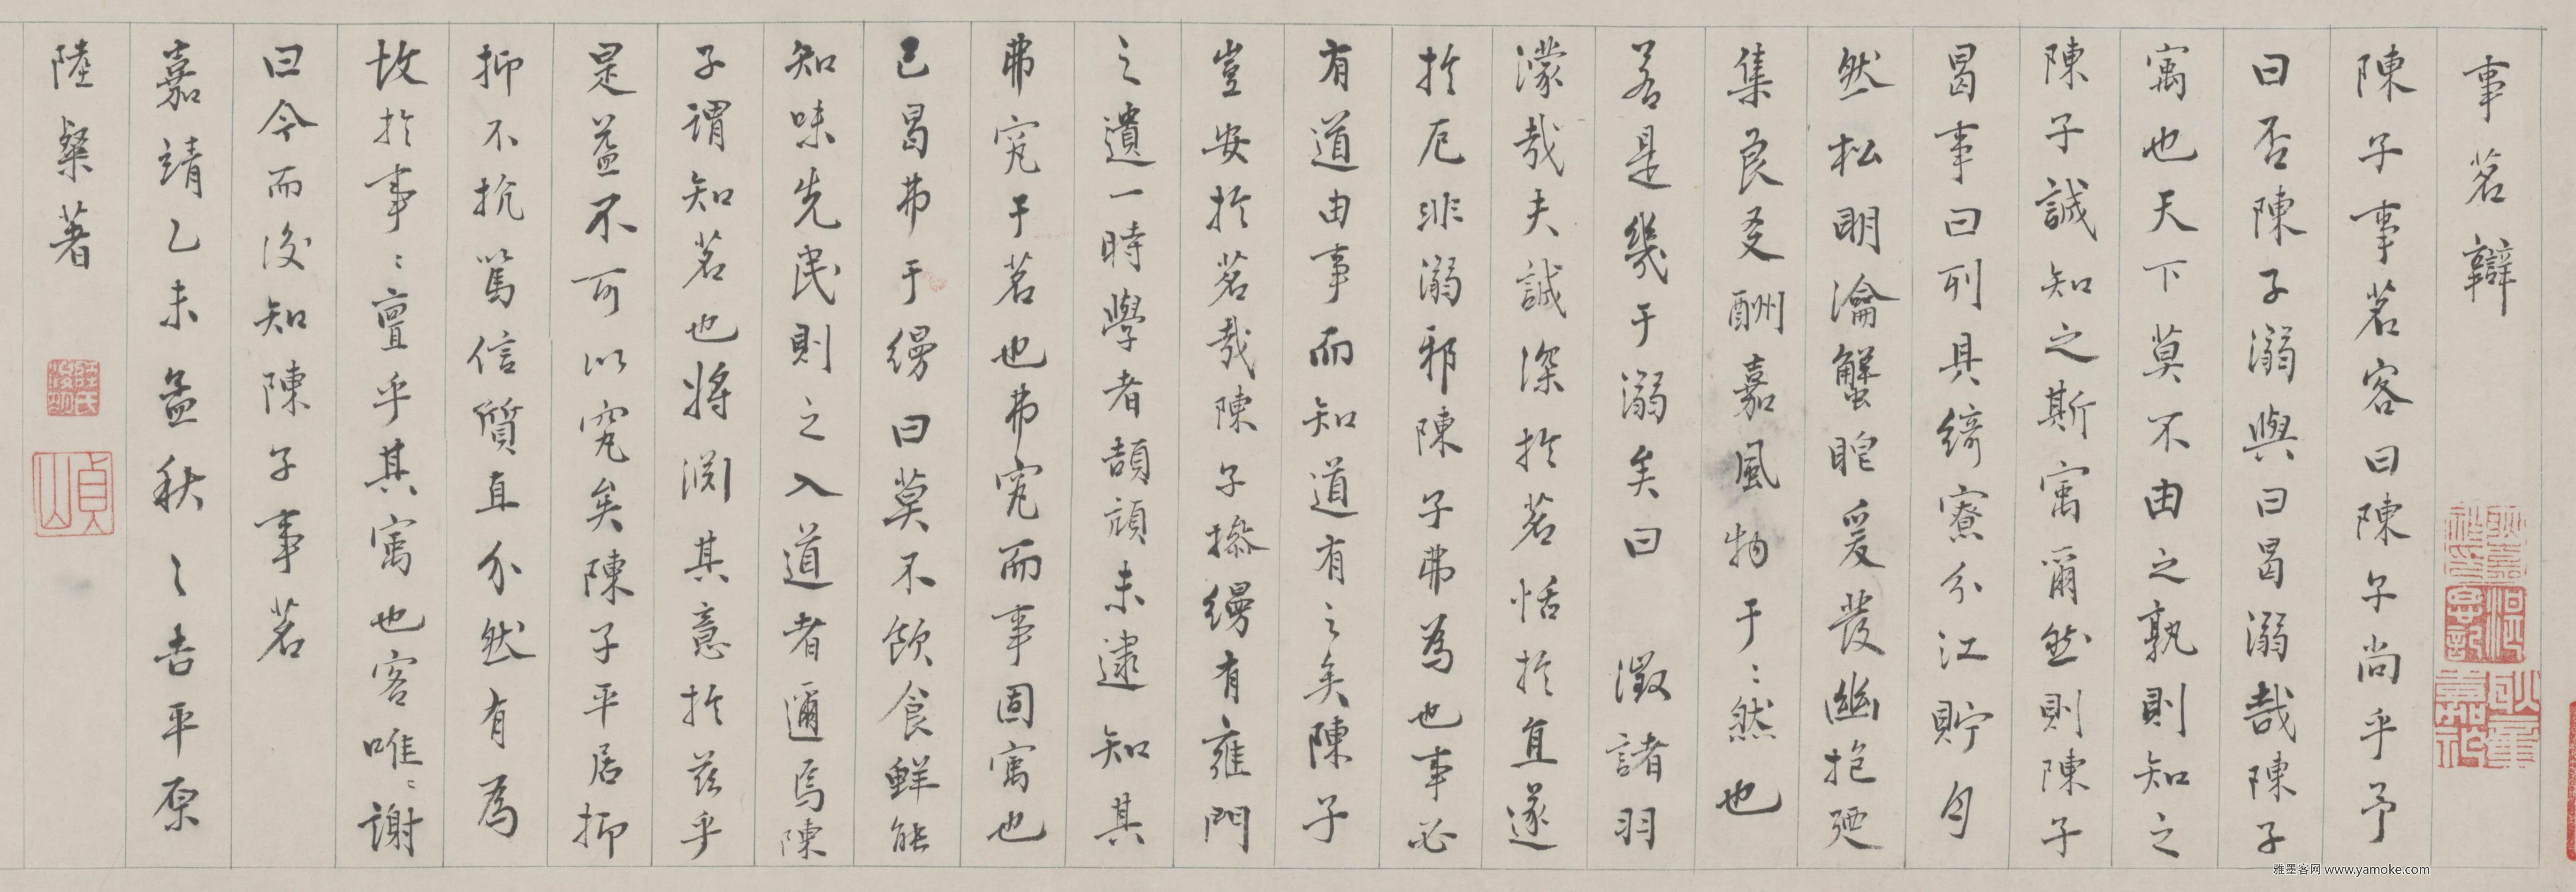 事茗辯
陳子事茗客曰陳子尚乎予
曰否陳子溺與曰曷溺哉陳子
寓也天下莫不由之孰則知之
陳子誠知之斯寓爾然則陳子
曷事曰列具綺寮分江貯月
然松明瀹蟹眼爰發幽抱迺
集良友酬嘉風物于〻然也
若是幾于溺矣曰 澂諸羽
濛哉夫誠深於茗恬於直遂
於厄非溺邪陳子弗為也事必
有道由事而知道有之矣陳子
豈安於茗哉陳子摻縵有雍門
之遺一時學者頡頏未逮知其
弗究于茗也弗究而事固寓也
已曷弗于縵曰莫不飲食鮮能
知味先民則之入道者邇焉陳
子謂知茗也將淵其意於茲乎
是益不可以究矣陳子平居抑
抑不抗篤信質直分然有為
故於事〻亶乎其寓也客唯〻謝
曰今而後知陳子事茗
嘉靖乙未孟秋之吉平原
陸粲著
貞山
雅墨客网 www.yamoke.com